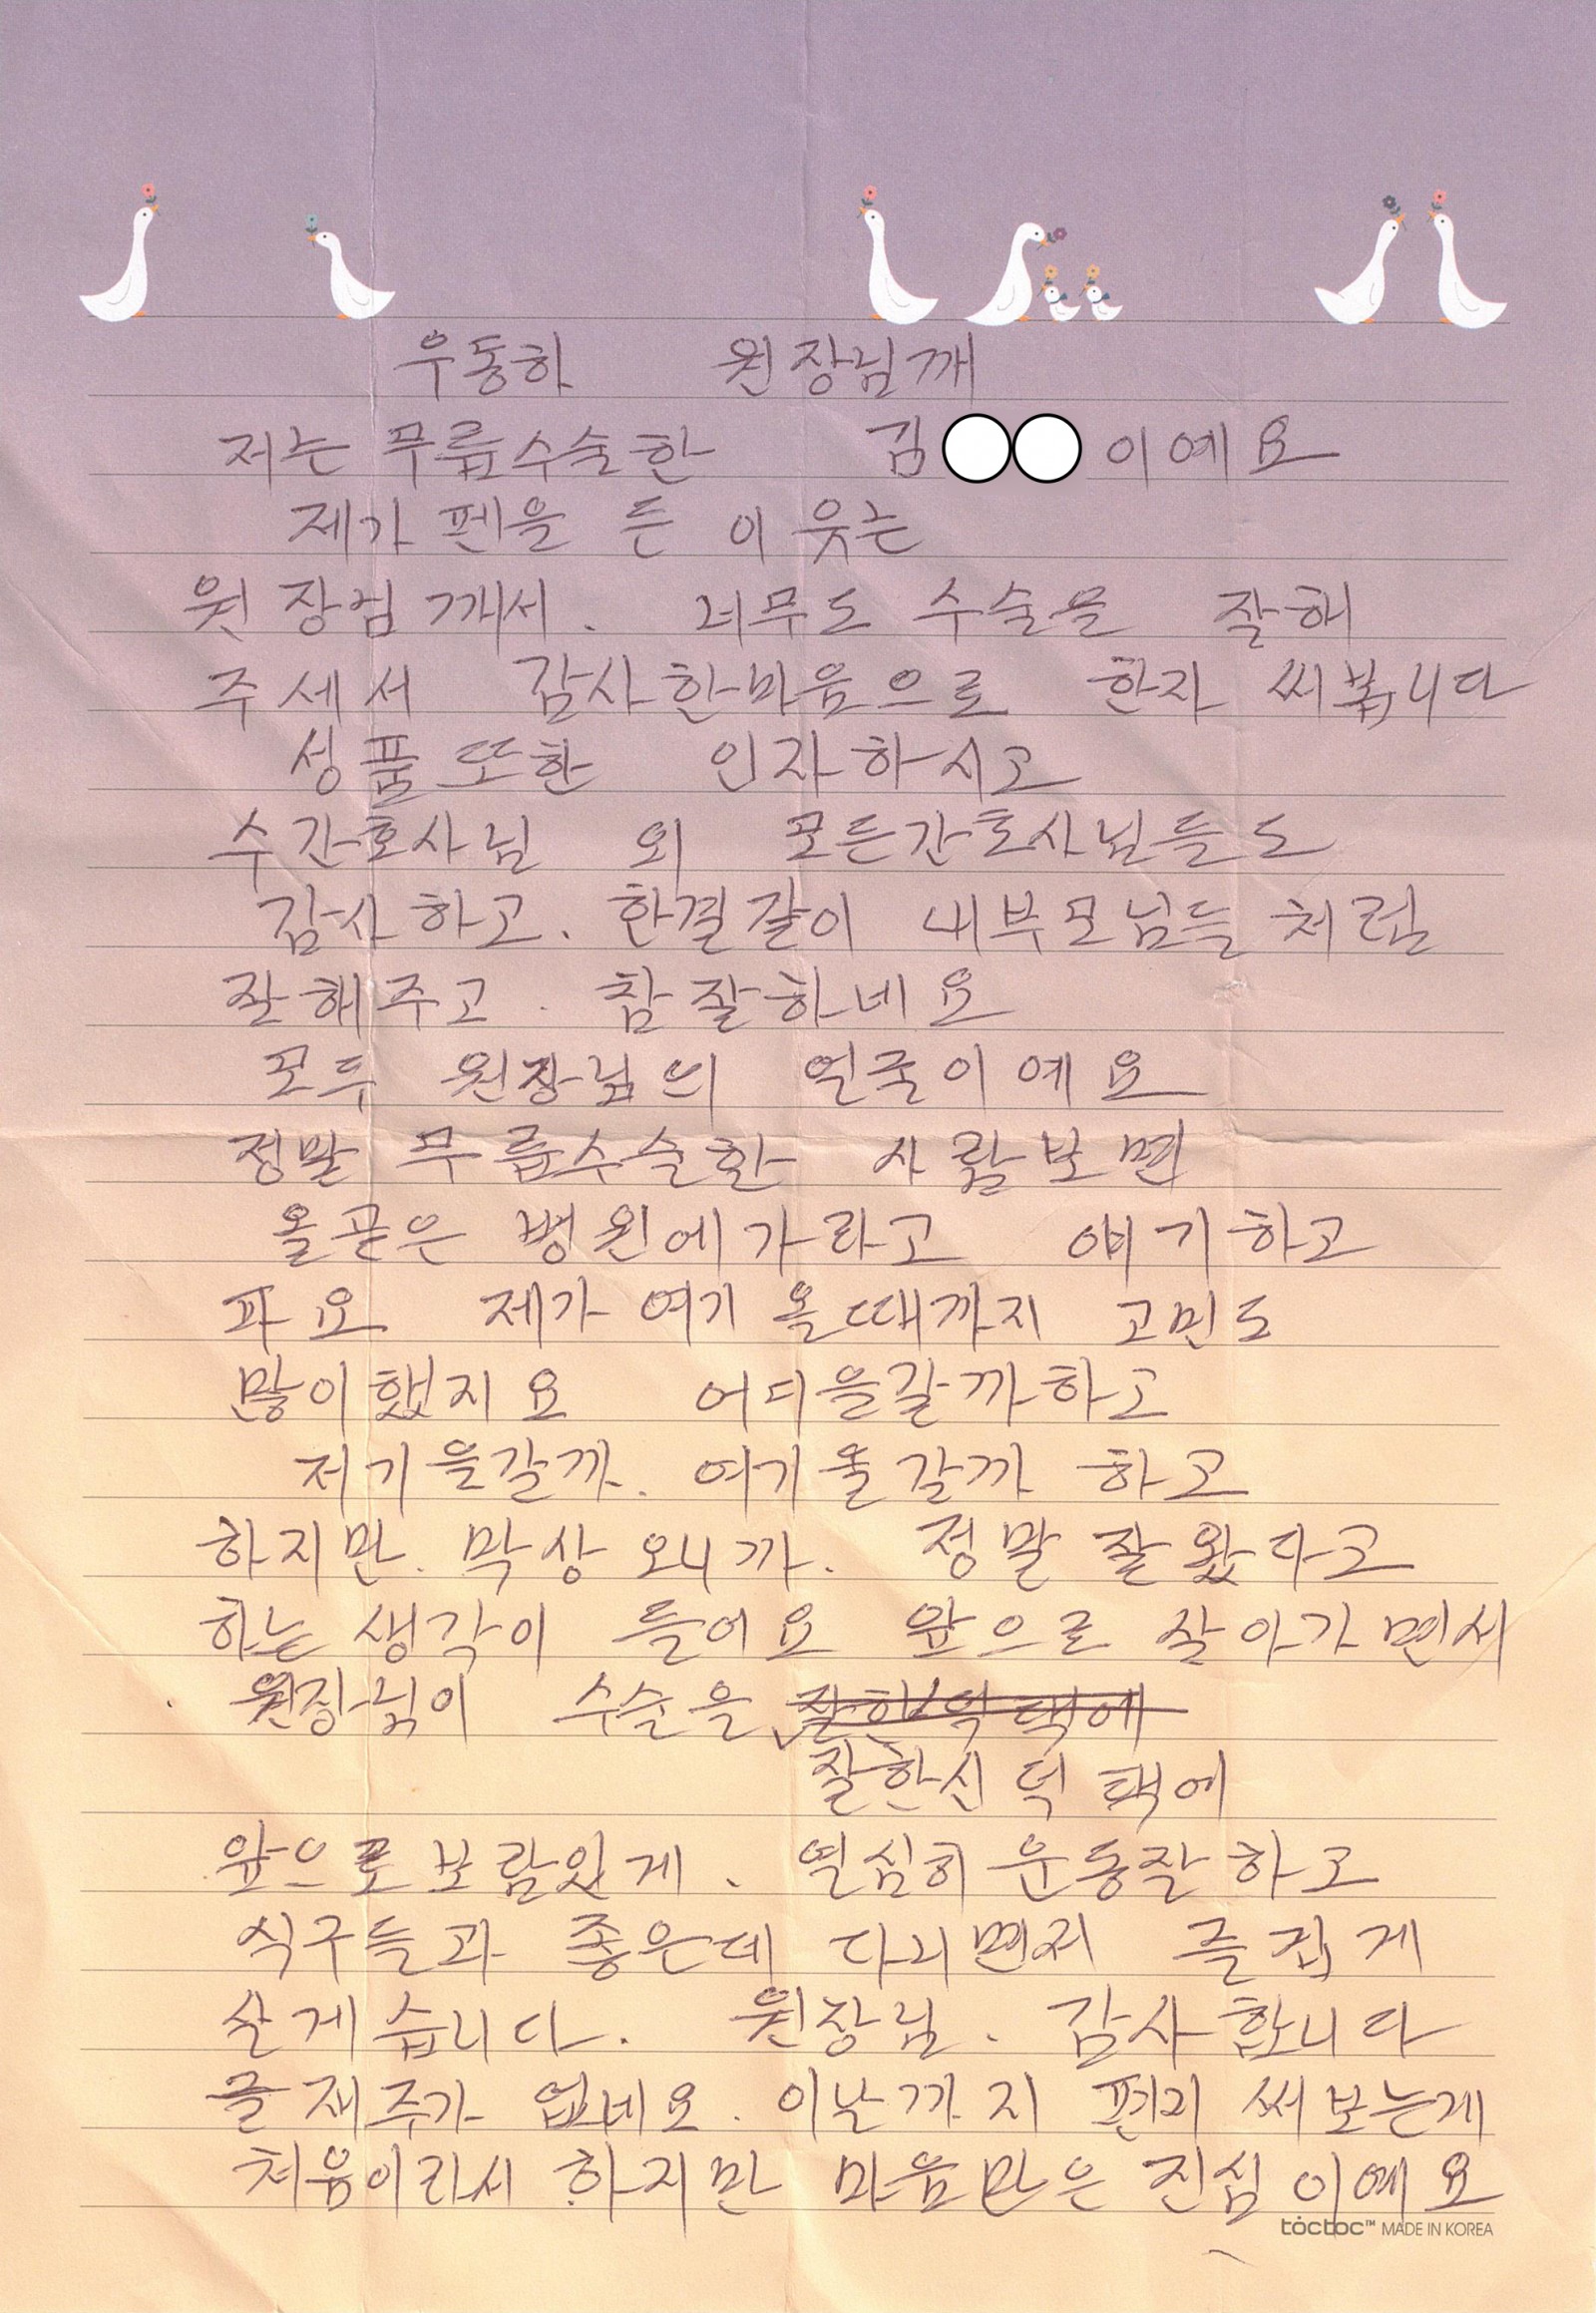 우동하 원장님깨
저는 무릎수술한 김○○이예요
제가 펜을 든 이웃는
원장님깨서. 너무도 수술을 잘해
주세서 감사한마음으로 한자 써봅니다
성품또한 인자하시고
수간호사님 외 모든간호사님들도
감사하고. 한결갈이 내부모님들처럼
잘해주고. 참잘하네요
모두 원장님의 얼줄이예요
정말 무릎수술한 사람보면
올곧은 병원에가라고 얘기하고
파요 제가 여기올때까지 고민도
많이했지요 어디을갈까하고
저기을갈까. 여기울갈까 하고
하지만. 막상오니까. 정말잘왔다고
하는생각이 들어요 앞으로 살아가면서
원장님이 수술을 잘한덕택에
잘한신덕택에
앞으로보람있게. 열심히운동잘하고
식구들과 좋은데 다니면서 즐겁게
살게습니다. 원장님. 감사합니다
글재주가 없네요. 이날까지 편지 써보는게
처음이라서 하지만 마음만은진심이예요
tòctoc™ MADE IN KOREA